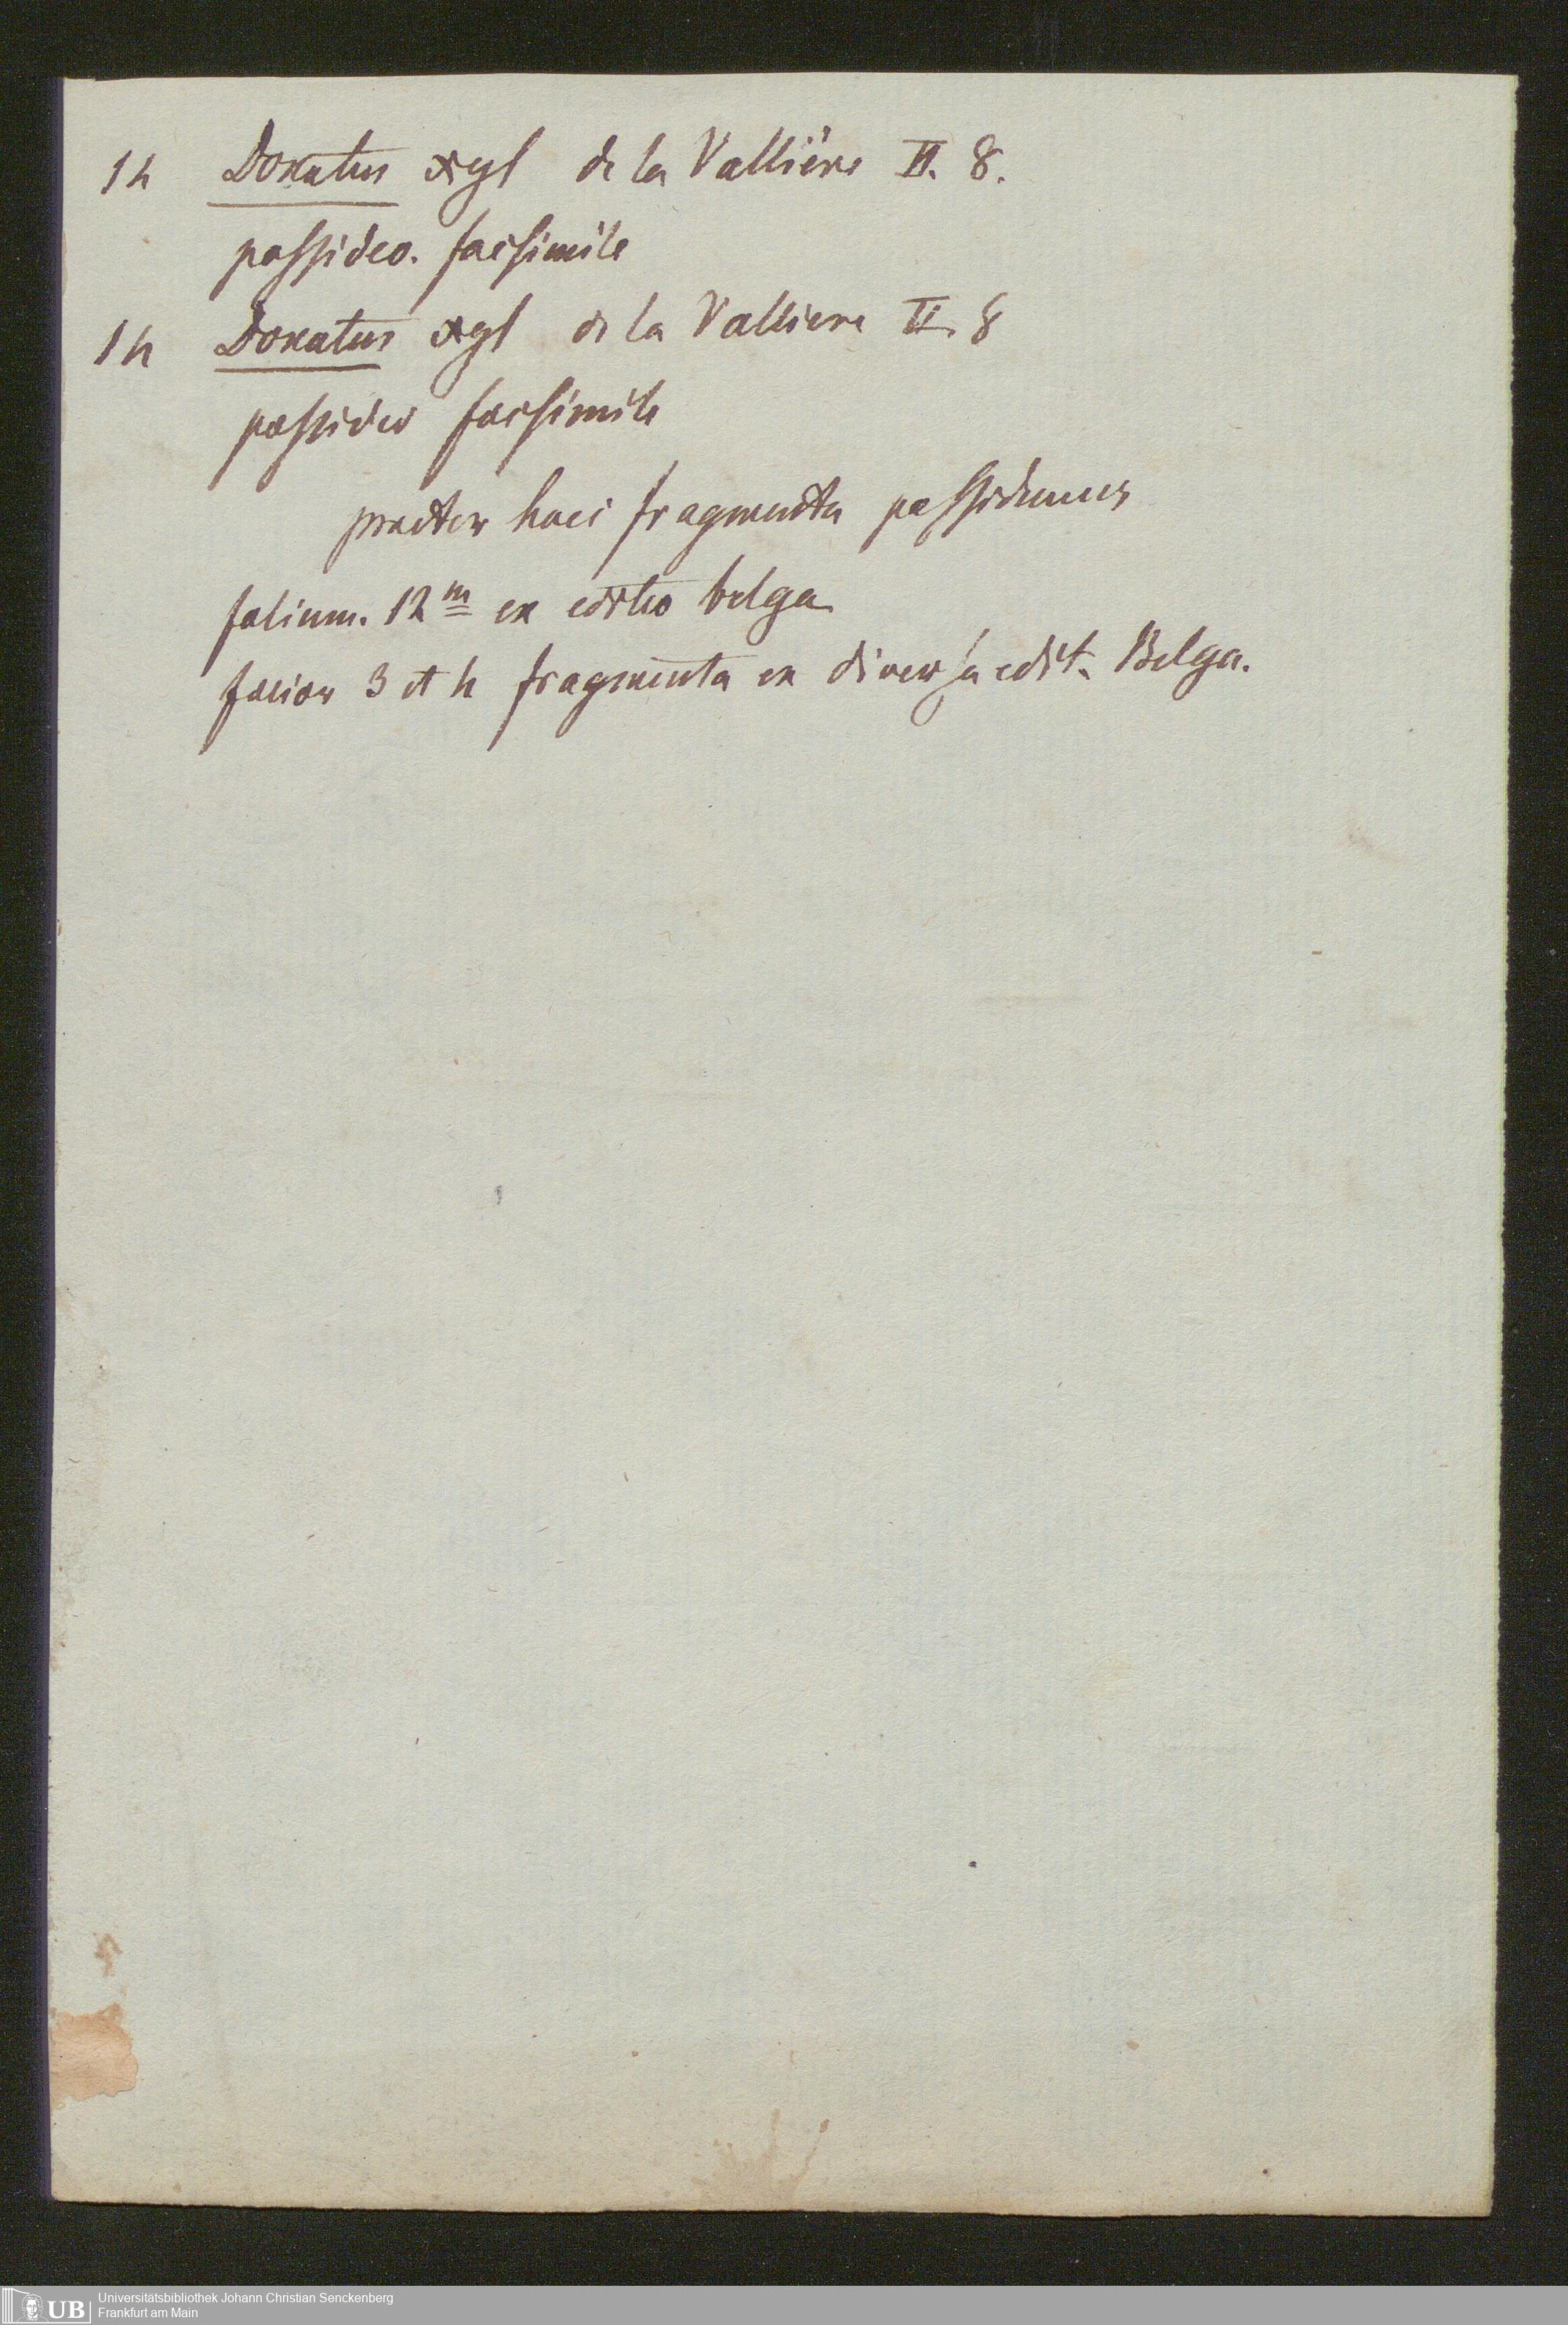 14 Donatus xyl de la Vallière II. 8.
possideo. facsimile
14 Donatus xyl de la Valliere II. 8
possideo facsimile
praeter haec fragmenta possidemus
folium. 12m ex editio belga
folior 3 et 4 fragmenta ex diversa edit. Belga.
UB Universitätsbibliothek Johann Christian Senckenberg
Frankfurt am Main